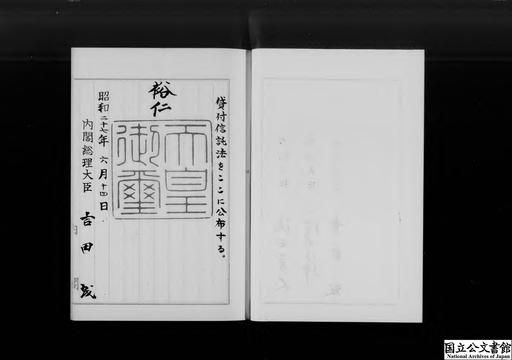 貸付信託法をここに公布する。
裕仁
天皇御璽
昭和二十七年六月十四日
内閣総理大臣 吉田茂
国立公文書館
National Archives of Japan